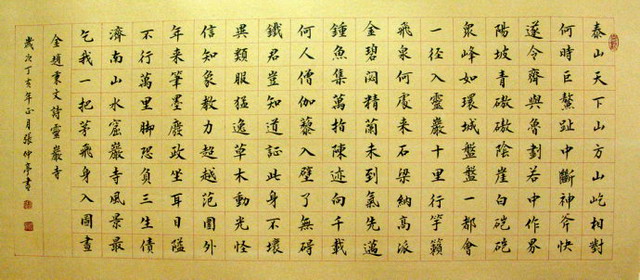 泰山天下山方山屹相對
何時巨鰲趾中斷神斧快
遂令齊與魯劃若中作界
陽坡青磝磝陰崖白
眾峰如環城盤盤一都會
一徑入靈巖十里行竽籟
飛泉何處来石梁納高派
金碧閟精蘭未到氣先邁
鍾魚集萬指陳迹向千載
何人僧伽藜入壁了無碍
鐵君豈知道証此身不壞
異類服猛逸草木動光怪
信知象教力超越范圍外
年来筆墨廢政坐耳目隘
不行萬里脚恐負三生債
濟南山水窟巖寺風景最
乞我一把茅飛身入圖畫
金趙秉文詩靈巖寺
歲次丁亥年正月張仲亭書